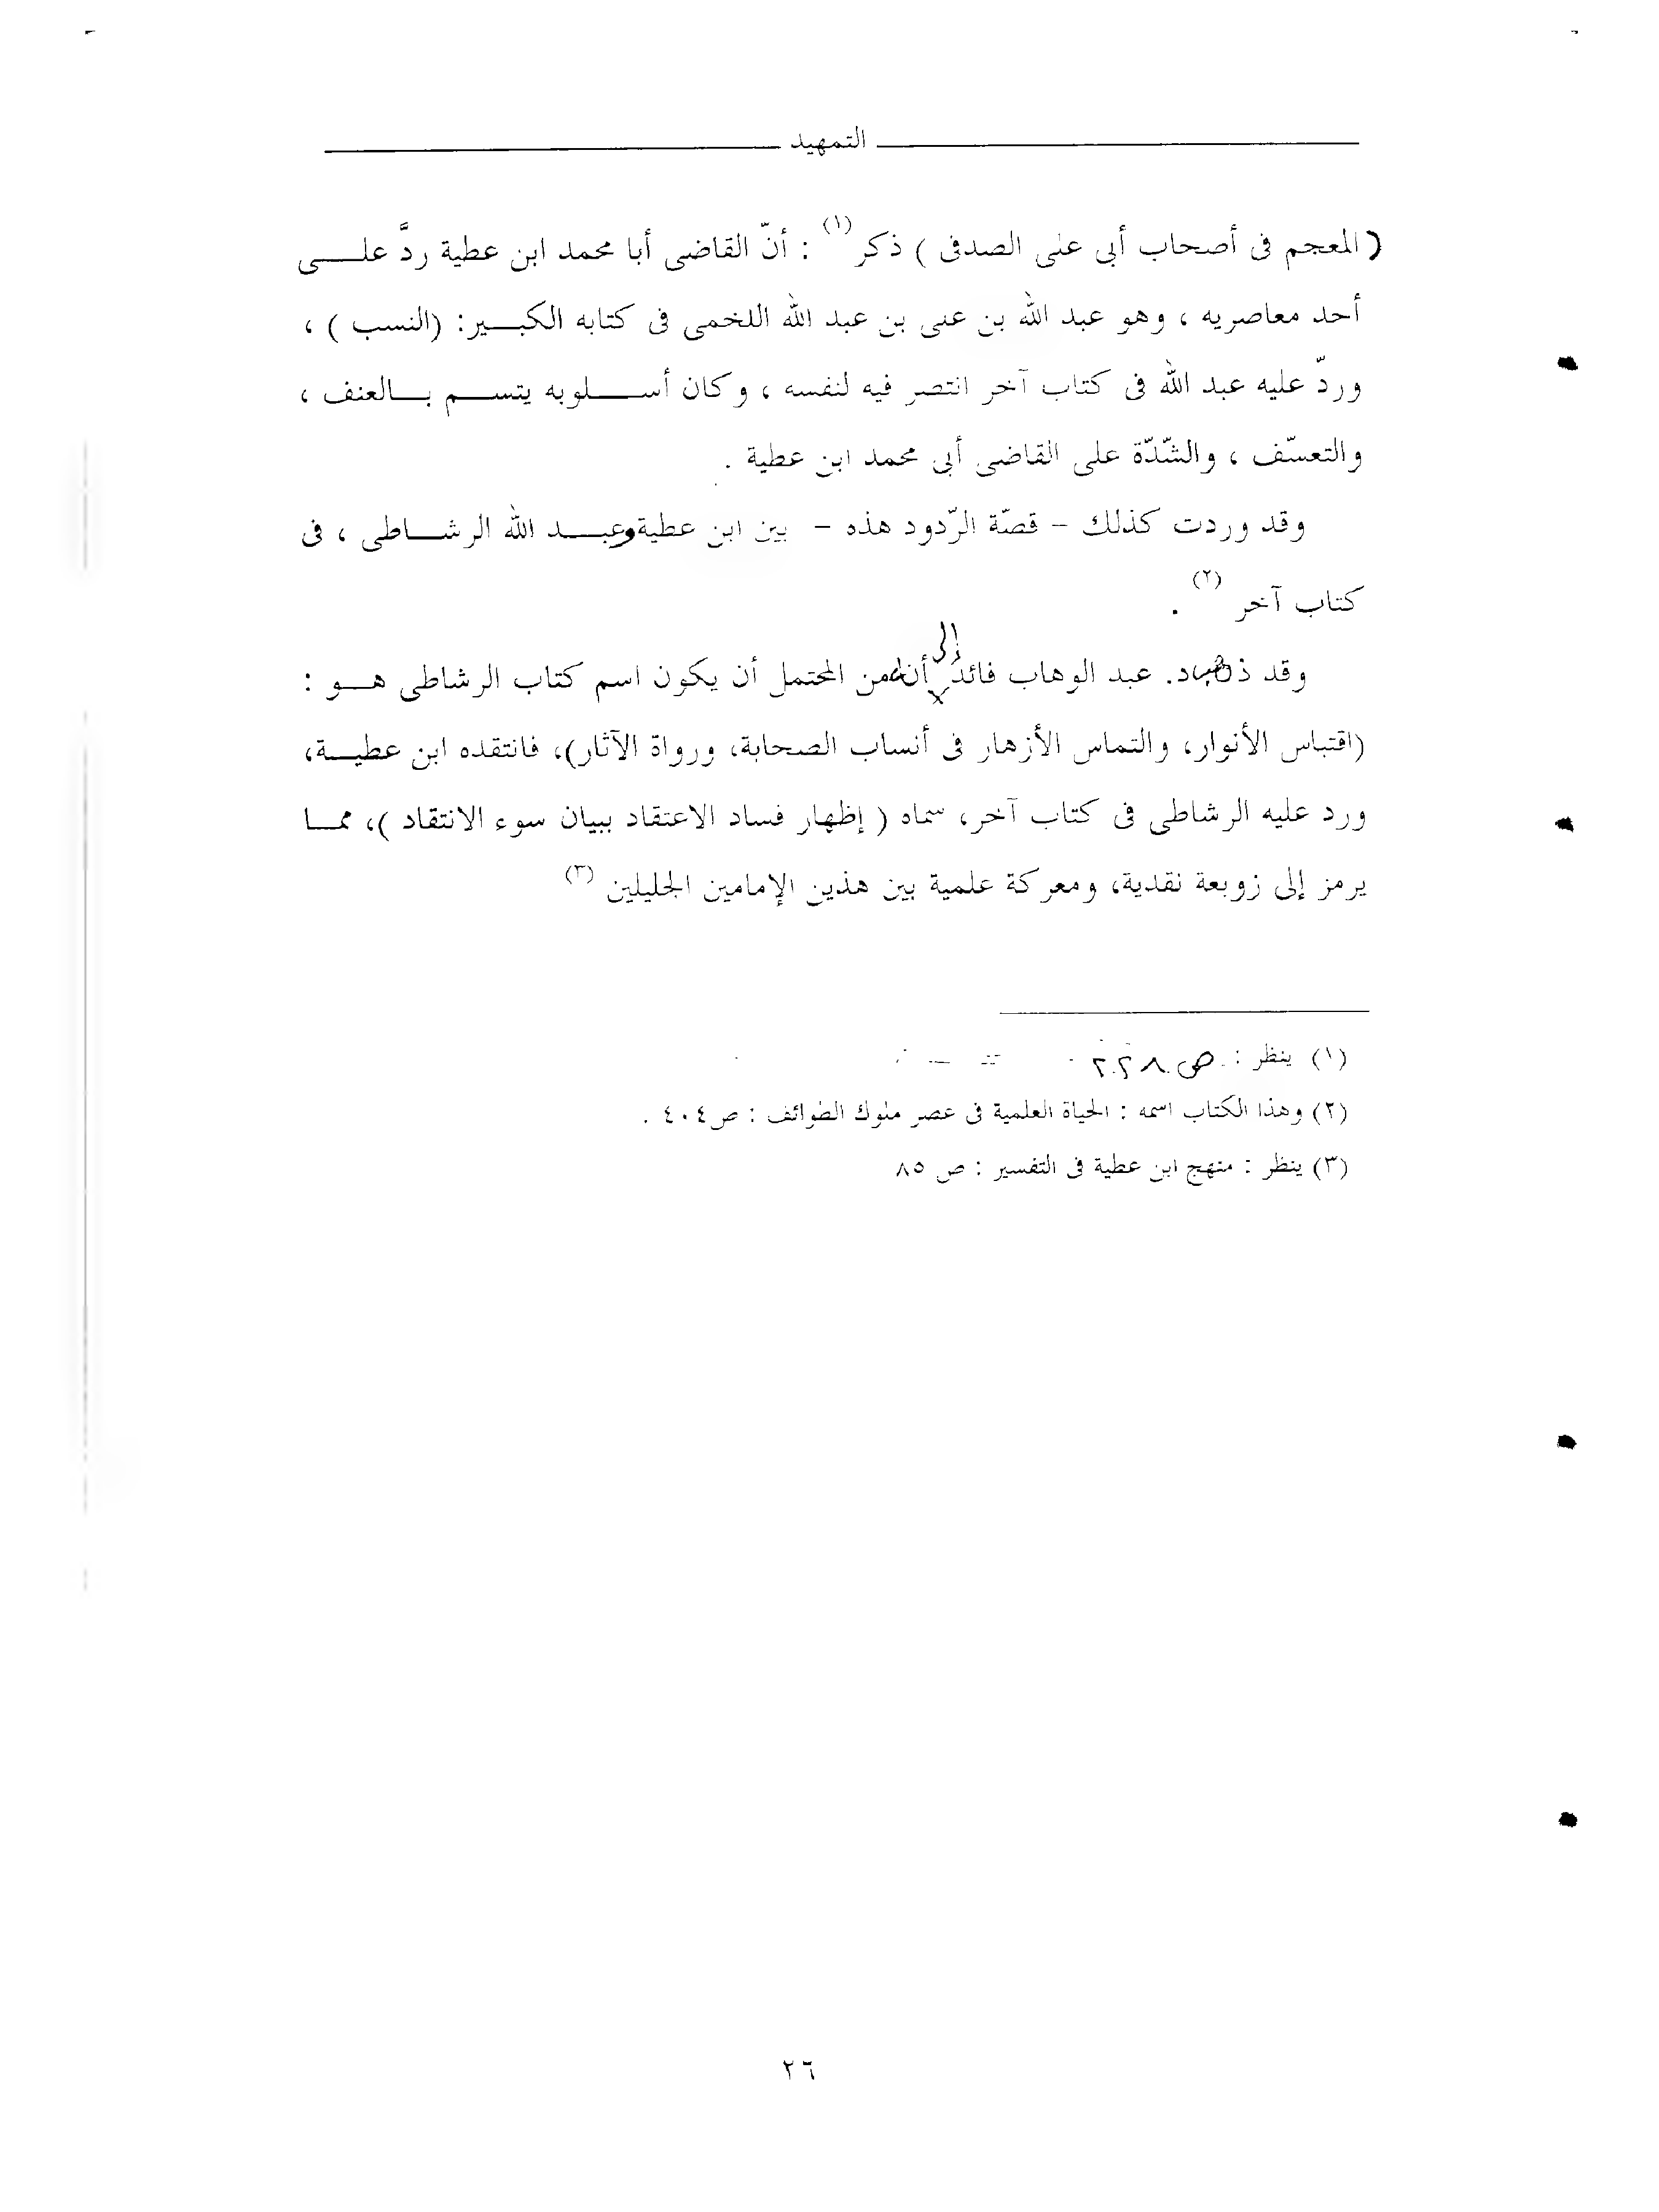 التمهيد
( المعجم فى أصحاب أبى على الصدفى ) ذكر (١) : أنّ القاضى أبا محمد ابن عطية ردَّ علـــى
أحد معاصريه ، وهو عبد الله بن على بن عبد الله اللخمى فى كتابه الكبـــير: (النسب ) ،
وردّ عليه عبد الله فى كتاب آخر انتصر فيه لنفسه ، وكان أســـلوبه يتســـم بـــالعنف ،
والتعسّف ، والشّدّة على القاضى أبى محمد ابن عطية .
وقد وردت كذلك – قصّة الرّدود هذه – بين ابن عطية وعبـــد الله الرشـــاطى ، فى
كتاب آخر (٢) .
وقد ذهب د. عبد الوهاب فائد إلى أنه من المحتمل أن يكون اسم كتاب الرشاطى هـــو :
(اقتباس الأنوار، والتماس الأزهار فى أنساب الصحابة، ورواة الآثار)، فانتقده ابن عطيـــة،
ورد عليه الرشاطى فى كتاب آخر، سماه ( إظهار فساد الاعتقاد ببيان سوء الانتقاد )، ممـــا
يرمز إلى زوبعة نقدية، ومعركة علمية بين هذين الإمامين الجليلين (٣)
(١) ينظر : ص
(٢) وهذا الكتاب اسمه : الحياة العلمية فى عصر ملوك الطوائف : ص٤٠٤ .
(٣) ينظر : منهج ابن عطية فى التفسير : ص ٨٥
٢٦